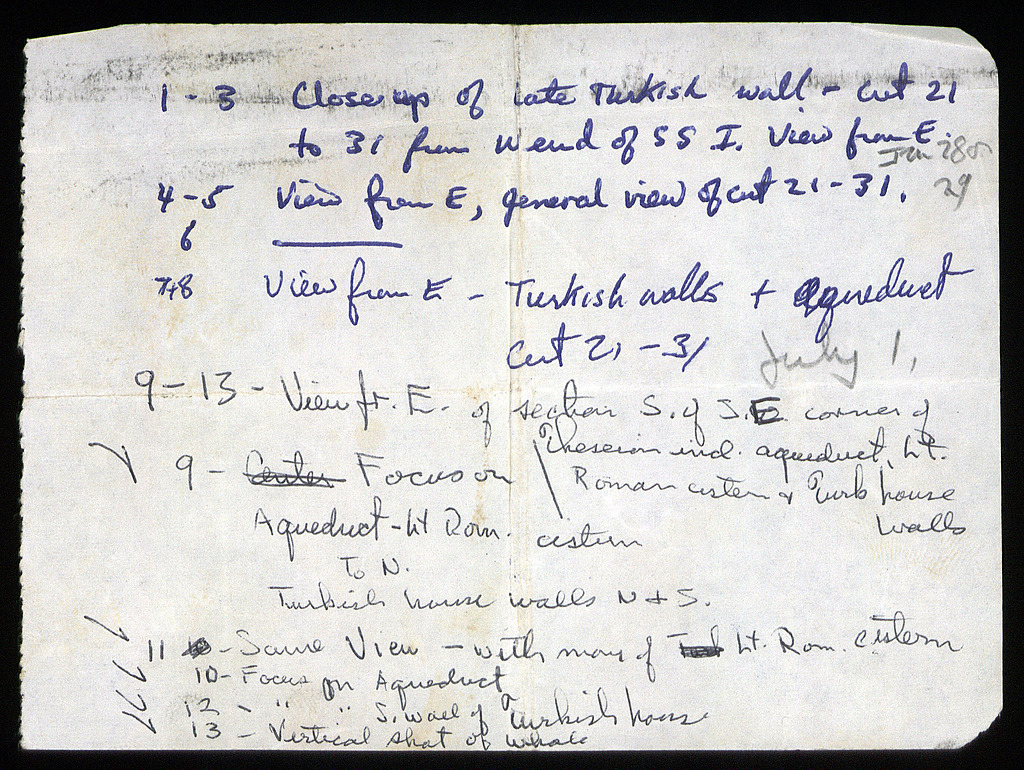 1 - 3 Closeup of late Turkish wall - cut 21
to 31 from W end of SS I. View from E.
Jun 28 or
29
4 - 5 View from E, general view of cut 21 - 31.
6
7+8 View from E - Turkish walls + aqueduct
cut 21 - 31
July 1,
9 - 13 - View fr. E. of section S. of S.E. corner of
Theseion incl. aqueduct, Lt.
Roman cistern + Turk house
walls
9 - Center Focus on
Aqueduct - Lt Rom. cistern
to N.
Turkish house walls N + S.
11 - Same View - with more of Lt. Rom. cistern
10 - Focus on Aqueduct
12 - " " S. wall of Turkish house
13 - Vertical shot of whole